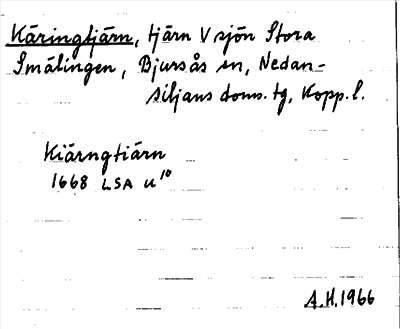 Käringtjärn, tjärn V sjön Stora
Smälingen, Bjursås sn, Nedan-
siljans doms. tg, Kopp. l.
Kiärngtiärn
1668 LSA U¹⁰
A.H. 1966